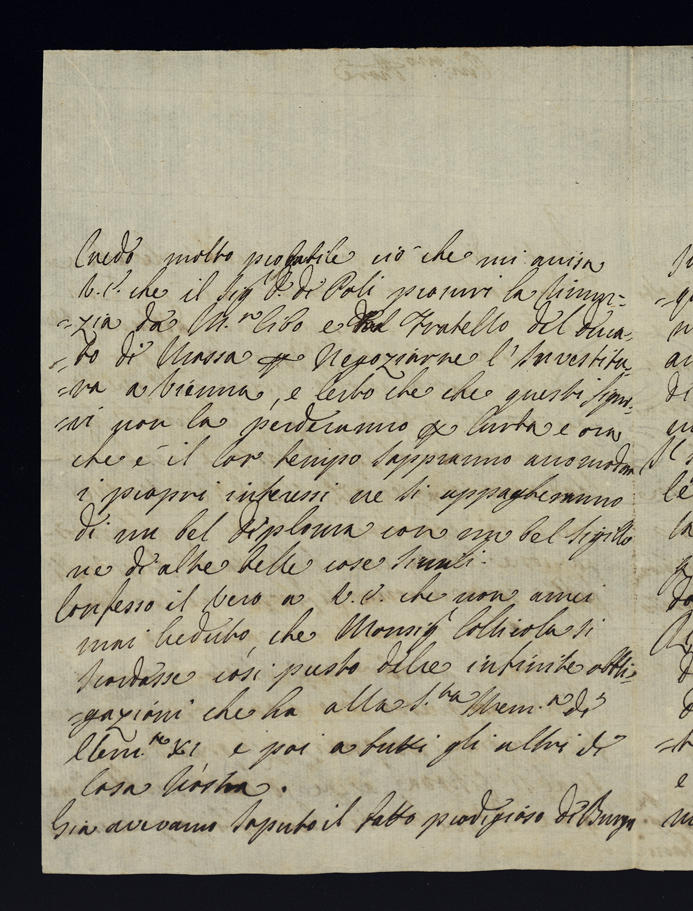 Credo molto probabile ciò che mi avisa
V.S. che il Sig.r D. di Poli procuri la
=zia da M.re Cibo e dal Fratello del Duca=
=to di Massa per Negoziarne l'Investitu=
=ra a Vienna, e certo che che questi Sign=
=ri non la perderanno per Curta e ora
che è il lor tempo sappranno accomodar
i propri interessi ne si appagheranno
di un bel diploma con un bel sigillo
ne di altre belle cose simili.
Confesso il vero a V.S. che non averei
mai creduto, che Monsig.r Collicola si
scordasse così presto delle infinite obbli=
=gazioni che ha alla S.ta Mem.a di
Clem.te XI e poi a tutti gli altri di
Casa Nostra.
Già avevamo saputo il fatto prodigioso di